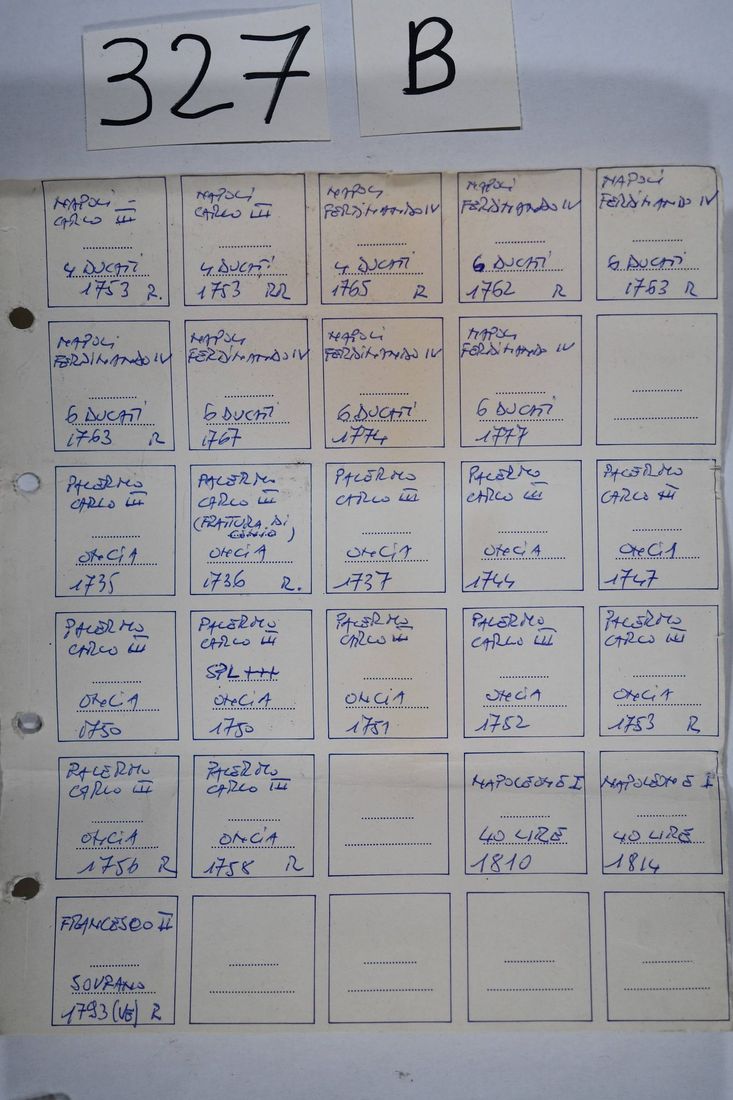 327
B
NAPOLI
CARLO III
4 DUCATI
1753 R.
NAPOLI
CARLO III
4 DUCATI
1753 RR
NAPOLI
FERDINANDO IV
4 DUCATI
1765 R
NAPOLI
FERDINANDO IV
6 DUCATI
1762 R
NAPOLI
FERDINANDO IV
6 DUCATI
1763 R
NAPOLI
FERDINANDO IV
6 DUCATI
1763 R
NAPOLI
FERDINANDO IV
6 DUCATI
1767
NAPOLI
FERDINANDO IV
6 DUCATI
1774
NAPOLI
FERDINANDO IV
6 DUCATI
1777
PALERMO
CARLO III
ONCIA
1735
PALERMO
CARLO III
(FRATTURA DI
CONIO)
ONCIA
1736 R.
PALERMO
CARLO III
ONCIA
1737
PALERMO
CARLO III
ONCIA
1744
PALERMO
CARLO III
ONCIA
1747
PALERMO
CARLO III
ONCIA
1750
PALERMO
CARLO III
SPL +++
ONCIA
1750
PALERMO
CARLO III
ONCIA
1751
PALERMO
CARLO III
ONCIA
1752
PALERMO
CARLO III
ONCIA
1753 R
PALERMO
CARLO III
ONCIA
1756 R
PALERMO
CARLO III
ONCIA
1758 R
NAPOLEONE I
40 LIRE
1810
NAPOLEONE I
40 LIRE
1814
FRANCESCO II
SOVRANO
1793 (VE) R